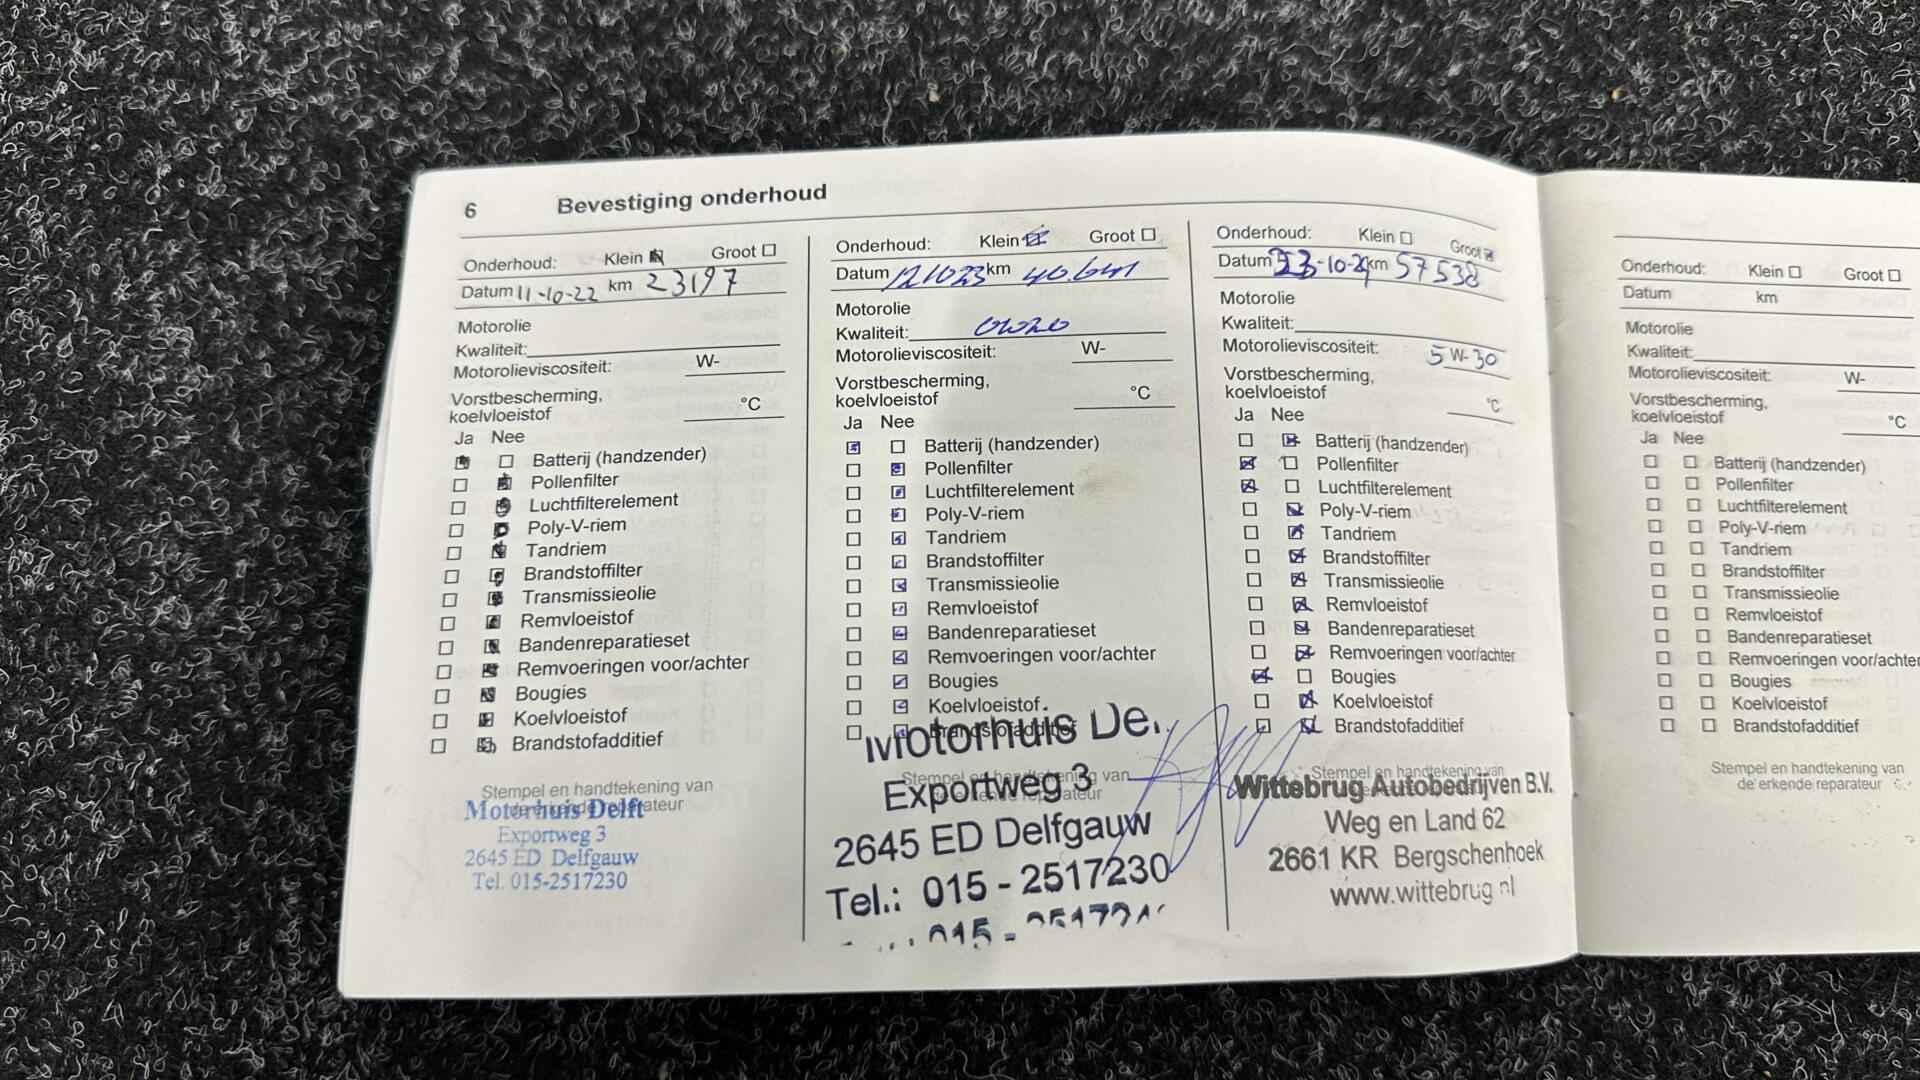 6 Bevestiging onderhoud
Onderhoud: Klein Groot
Datum 11-10-22 km 23197
Motorolie
Kwaliteit:
Motorolieviscositeit: W-
Vorstbescherming,
koelvloeistof °C
Ja Nee
Batterij (handzender)
Pollenfilter
Luchtfilterelement
Poly-V-riem
Tandriem
Brandstoffilter
Transmissieolie
Remvloeistof
Bandenreparatieset
Remvoeringen voor/achter
Bougies
Koelvloeistof
Brandstofadditief
Stempel en handtekening van
de erkende reparateur
Motorhuis Delft
Exportweg 3
2645 ED Delfgauw
Tel. 015-2517230
Onderhoud: Klein Groot
Datum 121023 km 40.641
Motorolie
Kwaliteit: 0W20
Motorolieviscositeit: W-
Vorstbescherming,
koelvloeistof °C
Ja Nee
Batterij (handzender)
Pollenfilter
Luchtfilterelement
Poly-V-riem
Tandriem
Brandstoffilter
Transmissieolie
Remvloeistof
Bandenreparatieset
Remvoeringen voor/achter
Bougies
Koelvloeistof
Brandstofadditief
Motorhuis De
Stempel en handtekening van
Exportweg 3
2645 ED Delfgauw
Tel.: 015 - 2517230
Onderhoud: Klein Groot
Datum 23-10-24 km 57538
Motorolie
Kwaliteit:
Motorolieviscositeit: 5 W-30
Vorstbescherming,
koelvloeistof °C
Ja Nee
Batterij (handzender)
Pollenfilter
Luchtfilterelement
Poly-V-riem
Tandriem
Brandstoffilter
Transmissieolie
Remvloeistof
Bandenreparatieset
Remvoeringen voor/achter
Bougies
Koelvloeistof
Brandstofadditief
Stempel en handtekening van
Wittebrug Autobedrijven B.V.
Weg en Land 62
2661 KR Bergschenhoek
www.wittebrug.nl
Onderhoud: Klein Groot
Datum km
Motorolie
Kwaliteit:
Motorolieviscositeit: W-
Vorstbescherming,
koelvloeistof °C
Ja Nee
Batterij (handzender)
Pollenfilter
Luchtfilterelement
Poly-V-riem
Tandriem
Brandstoffilter
Transmissieolie
Remvloeistof
Bandenreparatieset
Remvoeringen voor/achter
Bougies
Koelvloeistof
Brandstofadditief
Stempel en handtekening van
de erkende reparateur